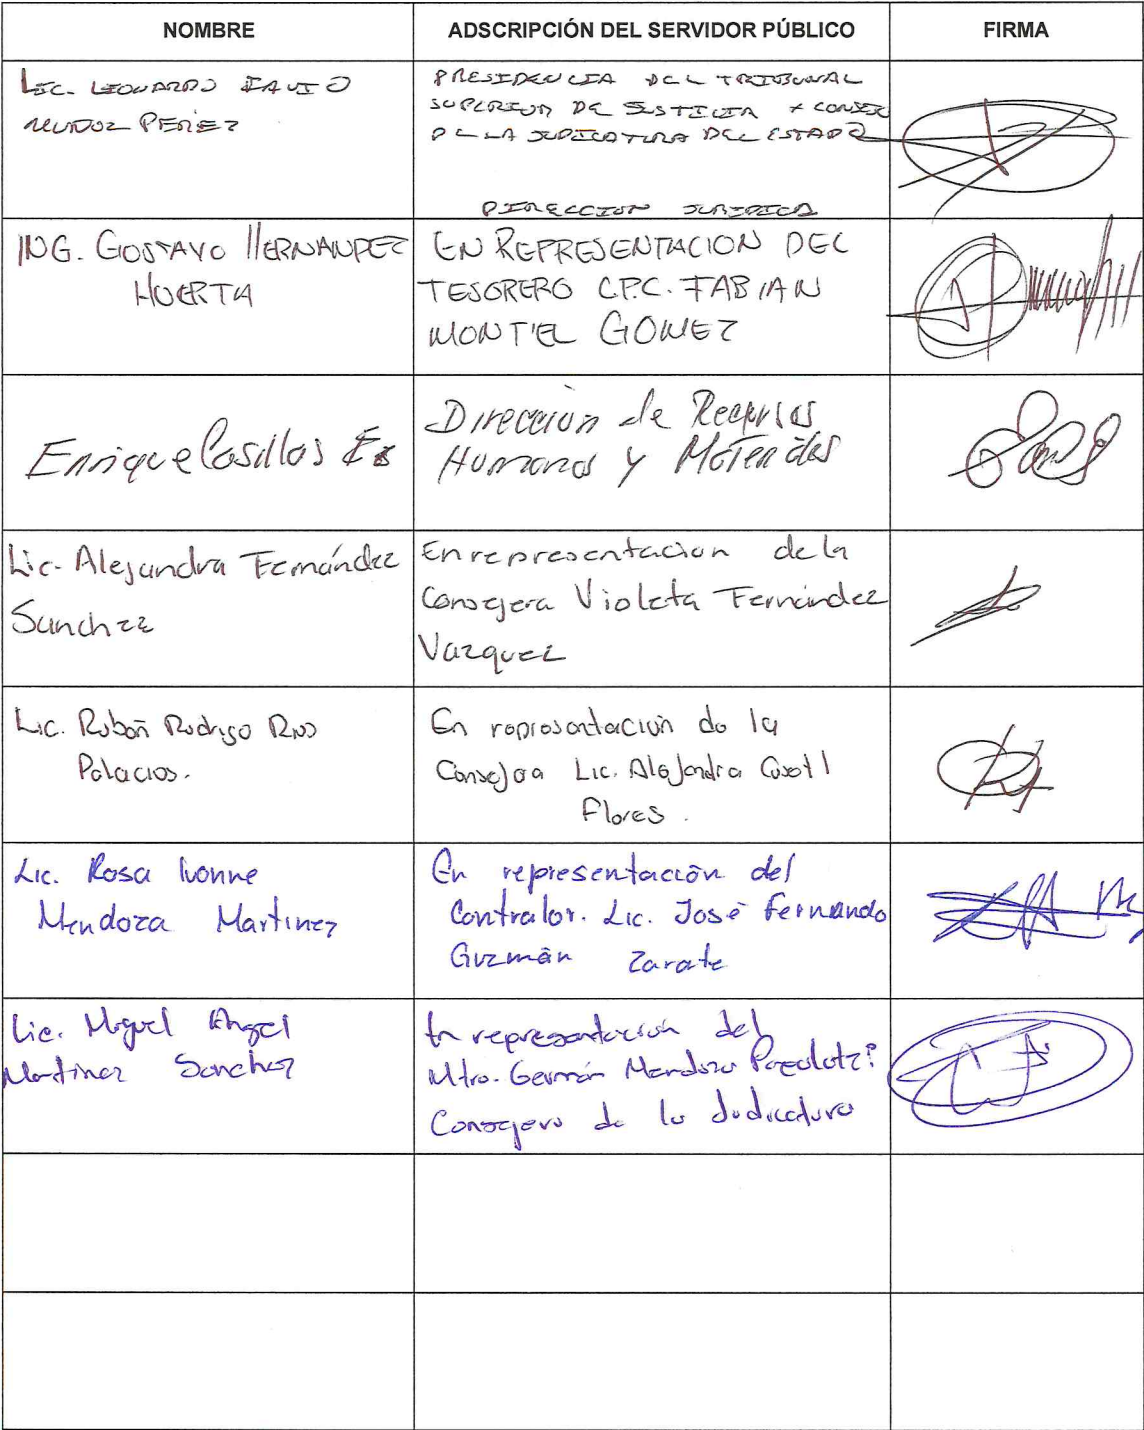 NOMBRE
ADSCRIPCIÓN DEL SERVIDOR PÚBLICO
FIRMA
LIC. LEONARDO DAVID
MUÑOZ PEREZ
PRESIDENCIA DEL TRIBUNAL
SUPERIOR DE JUSTICIA Y CONSEJO
DE LA JUDICATURA DEL ESTADO
DIRECCION JURIDICA
ING. GUSTAVO HERNANDEZ
HUERTA
EN REPRESENTACION DEL
TESORERO C.P.C. FABIAN
MONTIEL GOMEZ
Enrique Casillas
Dirección de Recursos
Humanos y Materiales
Lic. Alejandra Fernández
Sanchez
En representacion de la
Consejera Violeta Fernández
Vazquez
Lic. Rubén Rodrigo Rios
Palacios.
En representación de la
Consejera Lic. Alejandra Cosetl
Flores.
Lic. Rosa Ivonne
Mendoza Martinez
En representación del
Contralor. Lic. José Fernando
Guzmán Zarate
Lic. Miguel Angel
Martinez Sanchez
En representación del
Mtro. Germán Mendoza Papalotzi
Consejero de la Judicatura